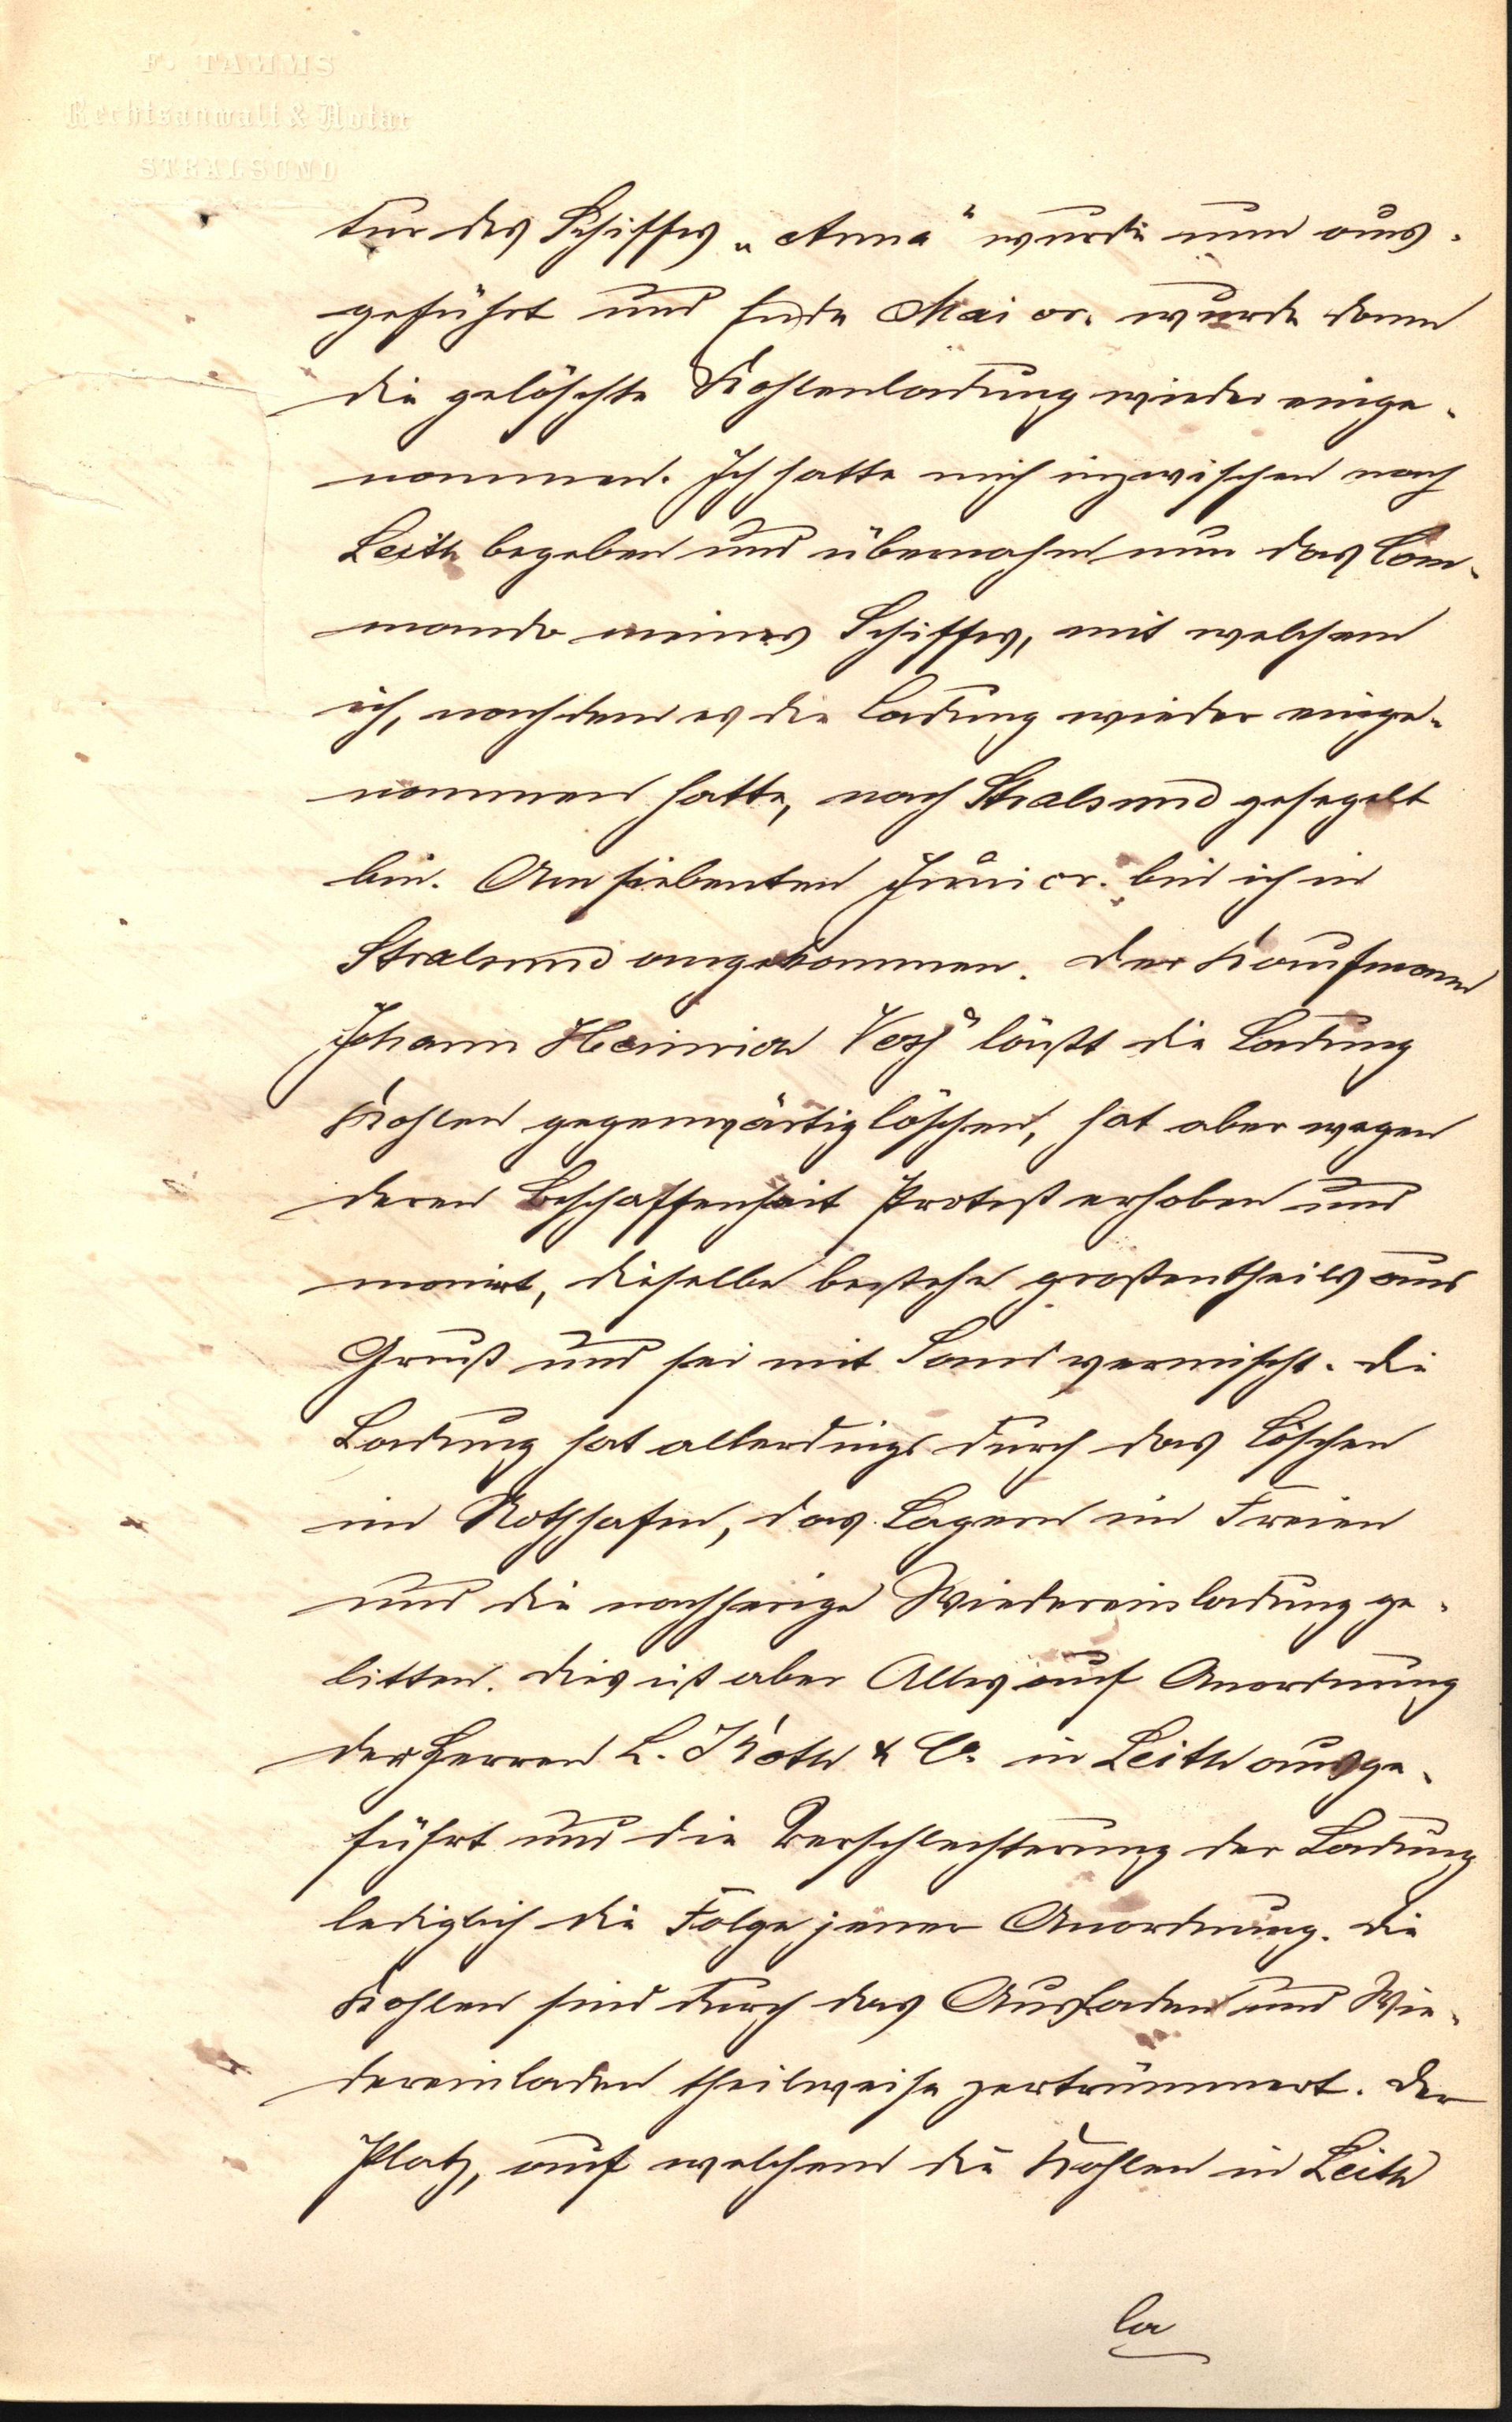 F. TAMMS
Rechtsanwalt & Notar
STRALSUND
tur des Schiffes „Anna“ wurde nun aus-
geführt und Ende Mai cr. wurde dann
die gelöschte Kohlenladung wieder einge-
nommen. Ich hatte mich inzwischen nach
Leith begeben und übernahm nun das Com-
mando meines Schiffes, mit welchem
ich, nachdem es die Ladung wieder einge-
nommen hatte, nach Stralsund gesegelt
bin. Am siebenten Juni cr. bin ich in
Stralsund angekommen. Der Kaufmann
Johann Heinrich läßt die Ladung
Kohlen gegenwärtig löschen, hat aber wegen
deren Beschaffenheit Protest erhoben und
monirt, dieselbe bestehe großentheils aus
Gruß und sei mit Sand vermischt. Die
Ladung hat allerdings durch das Löschen
im Nothhafen, das Lagern im Freien
und die nachherige Wiedereinladung ge-
litten. Dies ist aber Alles auf Anordnung
der Herren L. & Co. in Leith ausge-
führt und die Verschlechterung der Ladung
lediglich die Folge jener Anordnung. Die
Kohlen sind durch das Ausladen und Wie-
dereinladen theilweise zertrümmert. Der
Platz, auf welchem die Kohlen in Leith
la